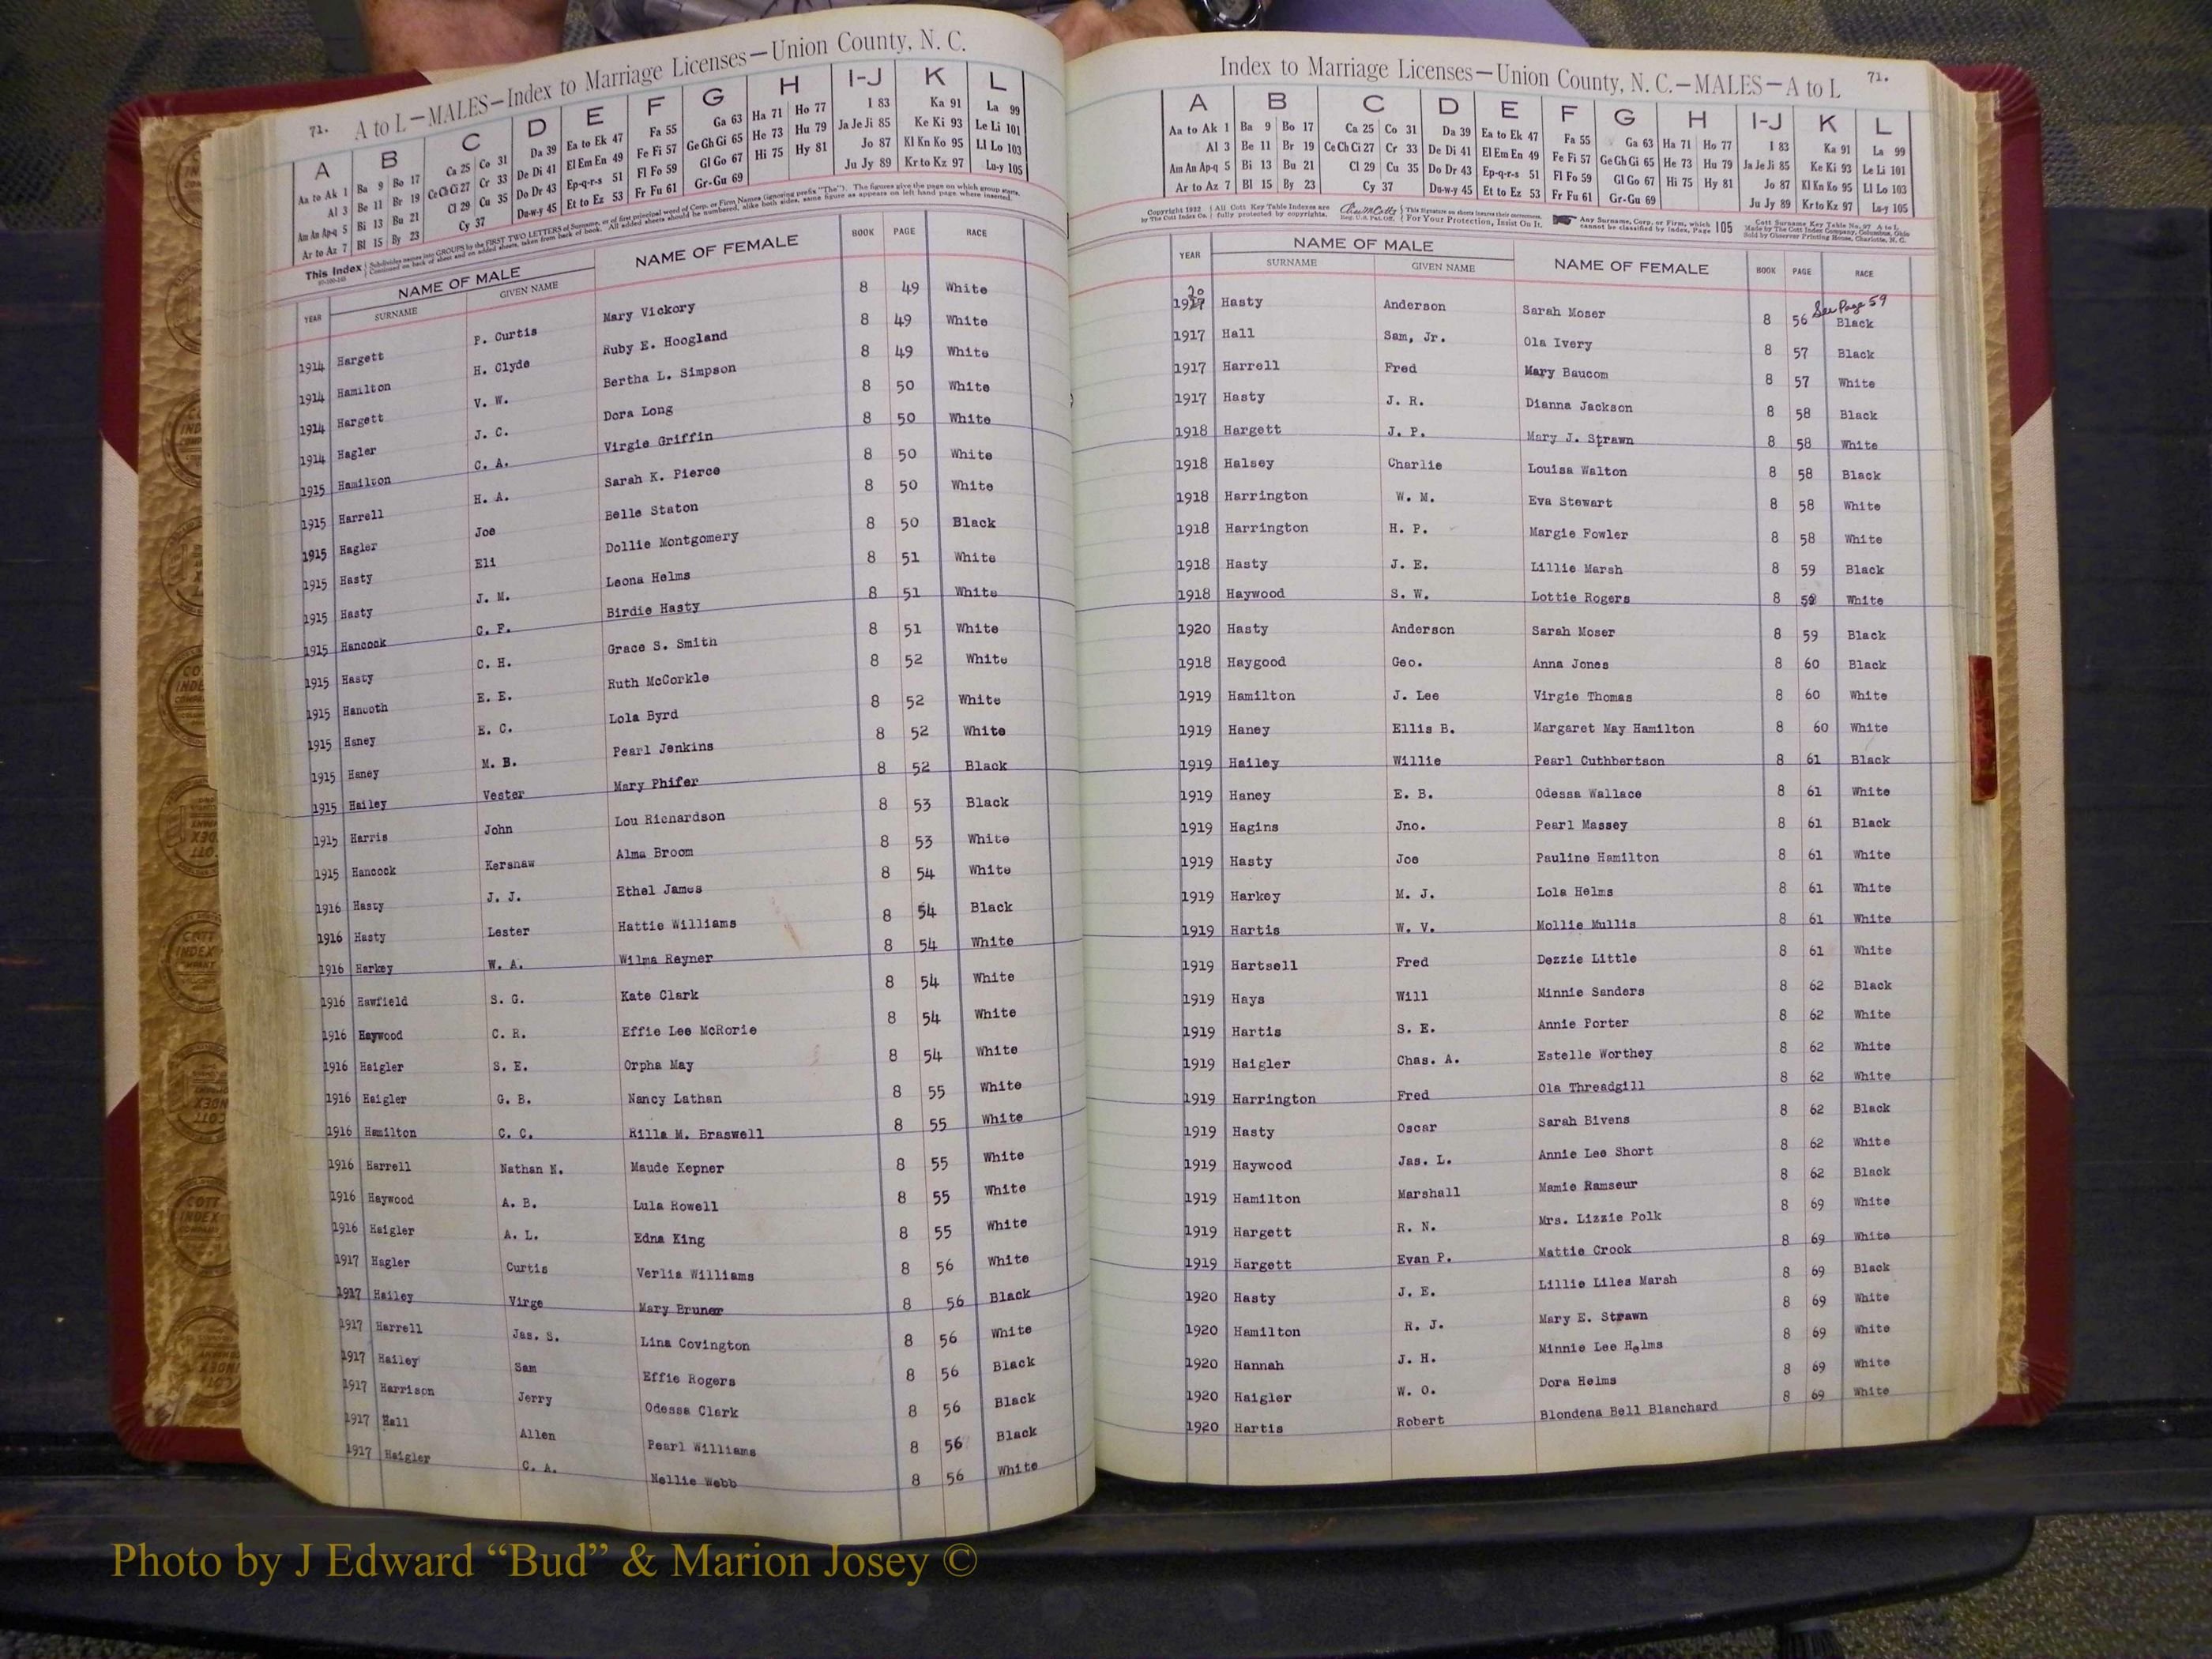 71. A to L—MALES—Index to Marriage Licenses—Union County, N. C.
A B C D E F G H I-J K L
Aa to Ak 1 Ba 9 Bo 17 Ca 25 Co 31 Da 39 Ea to Ek 47 Fa 55 Ga 63 Ha 71 Ho 77 I 83 Ka 91 La 99
Al 3 Be 11 Br 19 Ce Ch Ci 27 Cr 33 De Di 41 El Em En 49 Fe Fi 57 Ge Gh Gi 65 He 73 Hu 79 Ja Je Ji 85 Ke Ki 93 Le Li 101
Am An Ap-q 5 Bi 13 Bu 21 Cl 29 Cu 35 Do Dr 43 Ep-q-r-s 51 Fl Fo 59 Gl Go 67 Hi 75 Hy 81 Jo 87 Kl Kn Ko 95 Ll Lo 103
Ar to Az 7 Bl 15 By 23 Cy 37 Du-w-y 45 Et to Ez 53 Fr Fu 61 Gr-Gu 69 Ju Jy 89 Kr to Kz 97 Lu-y 105
This Index Subdivides names into GROUPS by the FIRST TWO LETTERS of Surname, or of first principal word of Corp. or Firm Names (ignoring prefix "The"). The figures give the page on which group starts.
Continued on back of sheet and on added sheets, taken from back of book. All added sheets should be numbered, alike both sides, same figure as appears on left hand page where inserted.
YEAR NAME OF MALE NAME OF FEMALE BOOK PAGE RACE
SURNAME GIVEN NAME
1914 Hargett P. Curtis Mary Vickory 8 49 White
1914 Hamilton H. Clyde Ruby E. Hoogland 8 49 White
1914 Hargett V. W. Bertha L. Simpson 8 49 White
1914 Hagler J. C. Dora Long 8 50 White
1915 Hamilton C. A. Virgie Griffin 8 50 White
1915 Harrell H. A. Sarah K. Pierce 8 50 White
1915 Hagler Joe Belle Staton 8 50 White
1915 Hasty Eli Dollie Montgomery 8 50 Black
1915 Hasty J. M. Leona Helms 8 51 White
1915 Hancock C. F. Birdie Hasty 8 51 White
1915 Hasty C. H. Grace S. Smith 8 51 White
1915 Hancoth E. E. Ruth McCorkle 8 52 White
1915 Haney E. C. Lola Byrd 8 52 White
1915 Haney M. B. Pearl Jenkins 8 52 White
1915 Hailey Vester Mary Phifer 8 52 Black
1915 Harris John Lou Richardson 8 53 Black
1915 Hancock Kershaw Alma Broom 8 53 White
1916 Hasty J. J. Ethel James 8 54 White
1916 Hasty Lester Hattie Williams 8 54 Black
1916 Harkey W. A. Wilma Rayner 8 54 White
1916 Hawfield S. G. Kate Clark 8 54 White
1916 Haywood C. R. Effie Lee McRorie 8 54 White
1916 Haigler S. E. Orpha May 8 54 White
1916 Haigler G. B. Nancy Lathan 8 55 White
1916 Hamilton C. C. Rilla M. Braswell 8 55 White
1916 Harrell Nathan N. Maude Kepner 8 55 White
1916 Haywood A. B. Lula Rowell 8 55 White
1916 Haigler A. L. Edna King 8 55 White
1917 Hagler Curtis Verlia Williams 8 56 White
1917 Hailey Virge Mary Bruner 8 56 Black
1917 Harrell Jas. S. Lina Covington 8 56 White
1917 Hailey Sam Effie Rogers 8 56 Black
1917 Harrison Jerry Odessa Clark 8 56 Black
1917 Hall Allen Pearl Williams 8 56 Black
1917 Haigler C. A. Nellie Webb 8 56 White
Index to Marriage Licenses—Union County, N. C.—MALES—A to L 71.
A B C D E F G H I-J K L
Aa to Ak 1 Ba 9 Bo 17 Ca 25 Co 31 Da 39 Ea to Ek 47 Fa 55 Ga 63 Ha 71 Ho 77 I 83 Ka 91 La 99
Al 3 Be 11 Br 19 Ce Ch Ci 27 Cr 33 De Di 41 El Em En 49 Fe Fi 57 Ge Gh Gi 65 He 73 Hu 79 Ja Je Ji 85 Ke Ki 93 Le Li 101
Am An Ap-q 5 Bi 13 Bu 21 Cl 29 Cu 35 Do Dr 43 Ep-q-r-s 51 Fl Fo 59 Gl Go 67 Hi 75 Hy 81 Jo 87 Kl Kn Ko 95 Ll Lo 103
Ar to Az 7 Bl 15 By 23 Cy 37 Du-w-y 45 Et to Ez 53 Fr Fu 61 Gr-Gu 69 Ju Jy 89 Kr to Kz 97 Lu-y 105
Copyright 1932 All Cott Key Table Indexes are This signature on sheets insures their correctness. Any Surname, Corp. or Firm, which 105 Cott Surname Key Table No. 97 A to L
by The Cott Index Co. fully protected by copyrights. Reg. U.S. Pat. Off. For Your Protection, Insist On It. cannot be classified by Index, Page Made by The Cott Index Company, Columbus, Ohio
Sold by Observer Printing House, Charlotte, N. C.
YEAR NAME OF MALE NAME OF FEMALE BOOK PAGE RACE
SURNAME GIVEN NAME
20 See Page 59
1917 Hasty Anderson Sarah Moser 8 56 Black
1917 Hall Sam, Jr. Ola Ivery 8 57 Black
1917 Harrell Fred Mary Baucom 8 57 White
1917 Hasty J. R. Dianna Jackson 8 58 Black
1918 Hargett J. P. Mary J. Strawn 8 58 White
1918 Halsey Charlie Louisa Walton 8 58 Black
1918 Harrington W. M. Eva Stewart 8 58 White
1918 Harrington H. P. Margie Fowler 8 58 White
1918 Hasty J. E. Lillie Marsh 8 59 Black
1918 Haywood S. W. Lottie Rogers 8 59 White
1920 Hasty Anderson Sarah Moser 8 59 Black
1918 Haygood Geo. Anna Jones 8 60 Black
1919 Hamilton J. Lee Virgie Thomas 8 60 White
1919 Haney Ellis B. Margaret May Hamilton 8 60 White
1919 Hailey Willie Pearl Cuthbertson 8 61 Black
1919 Haney E. B. Odessa Wallace 8 61 White
1919 Hagins Jno. Pearl Massey 8 61 Black
1919 Hasty Joe Pauline Hamilton 8 61 White
1919 Harkey M. J. Lola Helms 8 61 White
1919 Hartis W. V. Mollie Mullis 8 61 White
1919 Hartsell Fred Dezzie Little 8 61 White
1919 Hays Will Minnie Sanders 8 62 Black
1919 Hartis S. E. Annie Porter 8 62 White
1919 Haigler Chas. A. Estelle Worthey 8 62 White
1919 Harrington Fred Ola Threadgill 8 62 White
1919 Hasty Oscar Sarah Bivens 8 62 Black
1919 Haywood Jas. L. Annie Lee Short 8 62 White
1919 Hamilton Marshall Mamie Ramseur 8 62 Black
1919 Hargett R. N. Mrs. Lizzie Polk 8 69 White
1919 Hargett Evan P. Mattie Crook 8 69 White
1920 Hasty J. E. Lillie Liles Marsh 8 69 Black
1920 Hamilton R. J. Mary E. Strawn 8 69 White
1920 Hannah J. H. Minnie Lee Helms 8 69 White
1920 Haigler W. O. Dora Helms 8 69 White
1920 Hartis Robert Blondena Bell Blanchard 8 69 White
Photo by J Edward “Bud” & Marion Josey ©